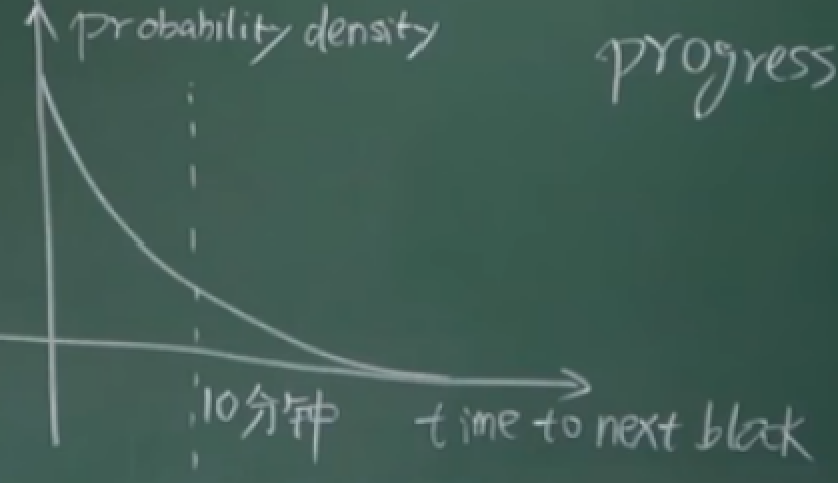 probability density
progress
10分钟
time to next block